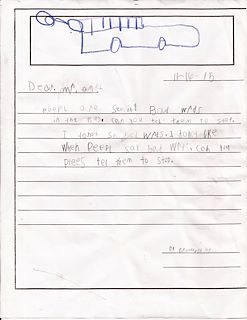 11-16-15
Dear, mr,
peepl are saing Bad wrds
in the bus. can you tel them to stop.
I dont sa bad wrds. I dont like
when peepl sai bad wrds. can
prees tel them to stop.